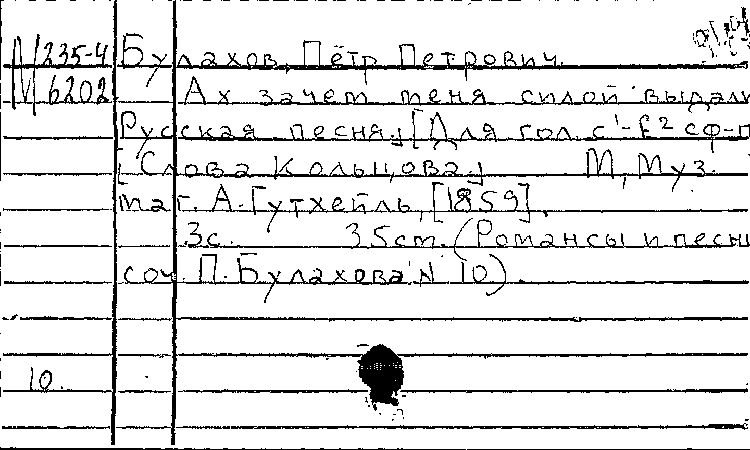 М 235-4 Булахов, Пётр Петрович.
М 6202 Ах зачем меня силой выдали
Русская песня. [Для гол. с ф-п
[Слова Кольцова.] М., Муз.
маг. А. Гутхейль, [1859].
3с. 35cm. (Романсы и песни
соч. П. Булахова N 10).
10.